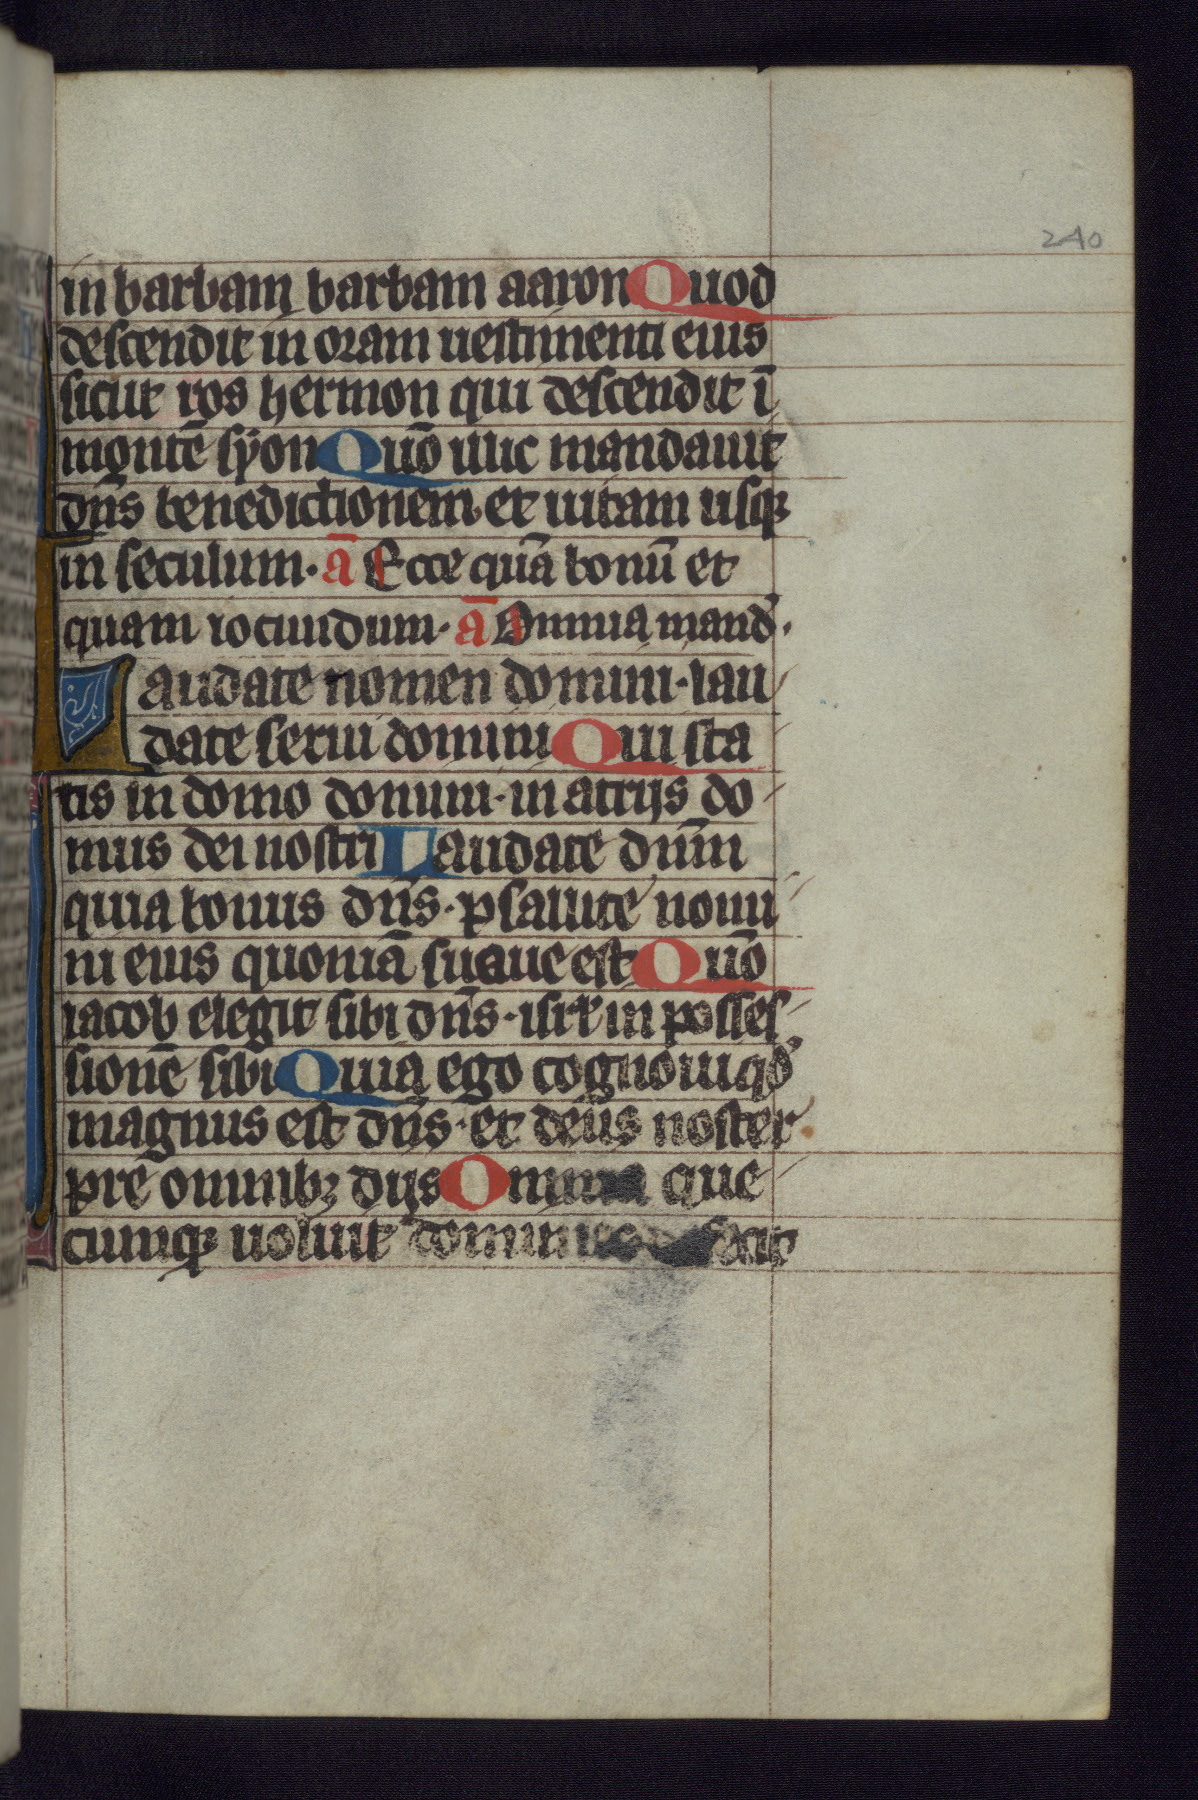 240
in barbam barbam aaron Quod
descendit in oram uestimenti eius
sicut ros hermon qui descendit ī
montē syon Quō illic mandauit
dn̄s benedictionem et uitam usqꝫ
in seculum. ā Ecce quā bonū et
quam iocundum. ā Omnia mand̄.
Laudate nomen domini. lau
date serui domini Qui sta
tis in domo domini. in atrijs do
mus dei nostri Laudate dn̄m
quia bonus dn̄s. psallite nomi
ni eius quoniā suaue est Quō
iacob elegit sibi dn̄s. isrl̄ in posses
sionē sibi Quia ego cognoui qd̄
magnus est dn̄s. et deus noster
pre omnibꝫ dijs Omnia que
cumqꝫ uoluit dominus fecit